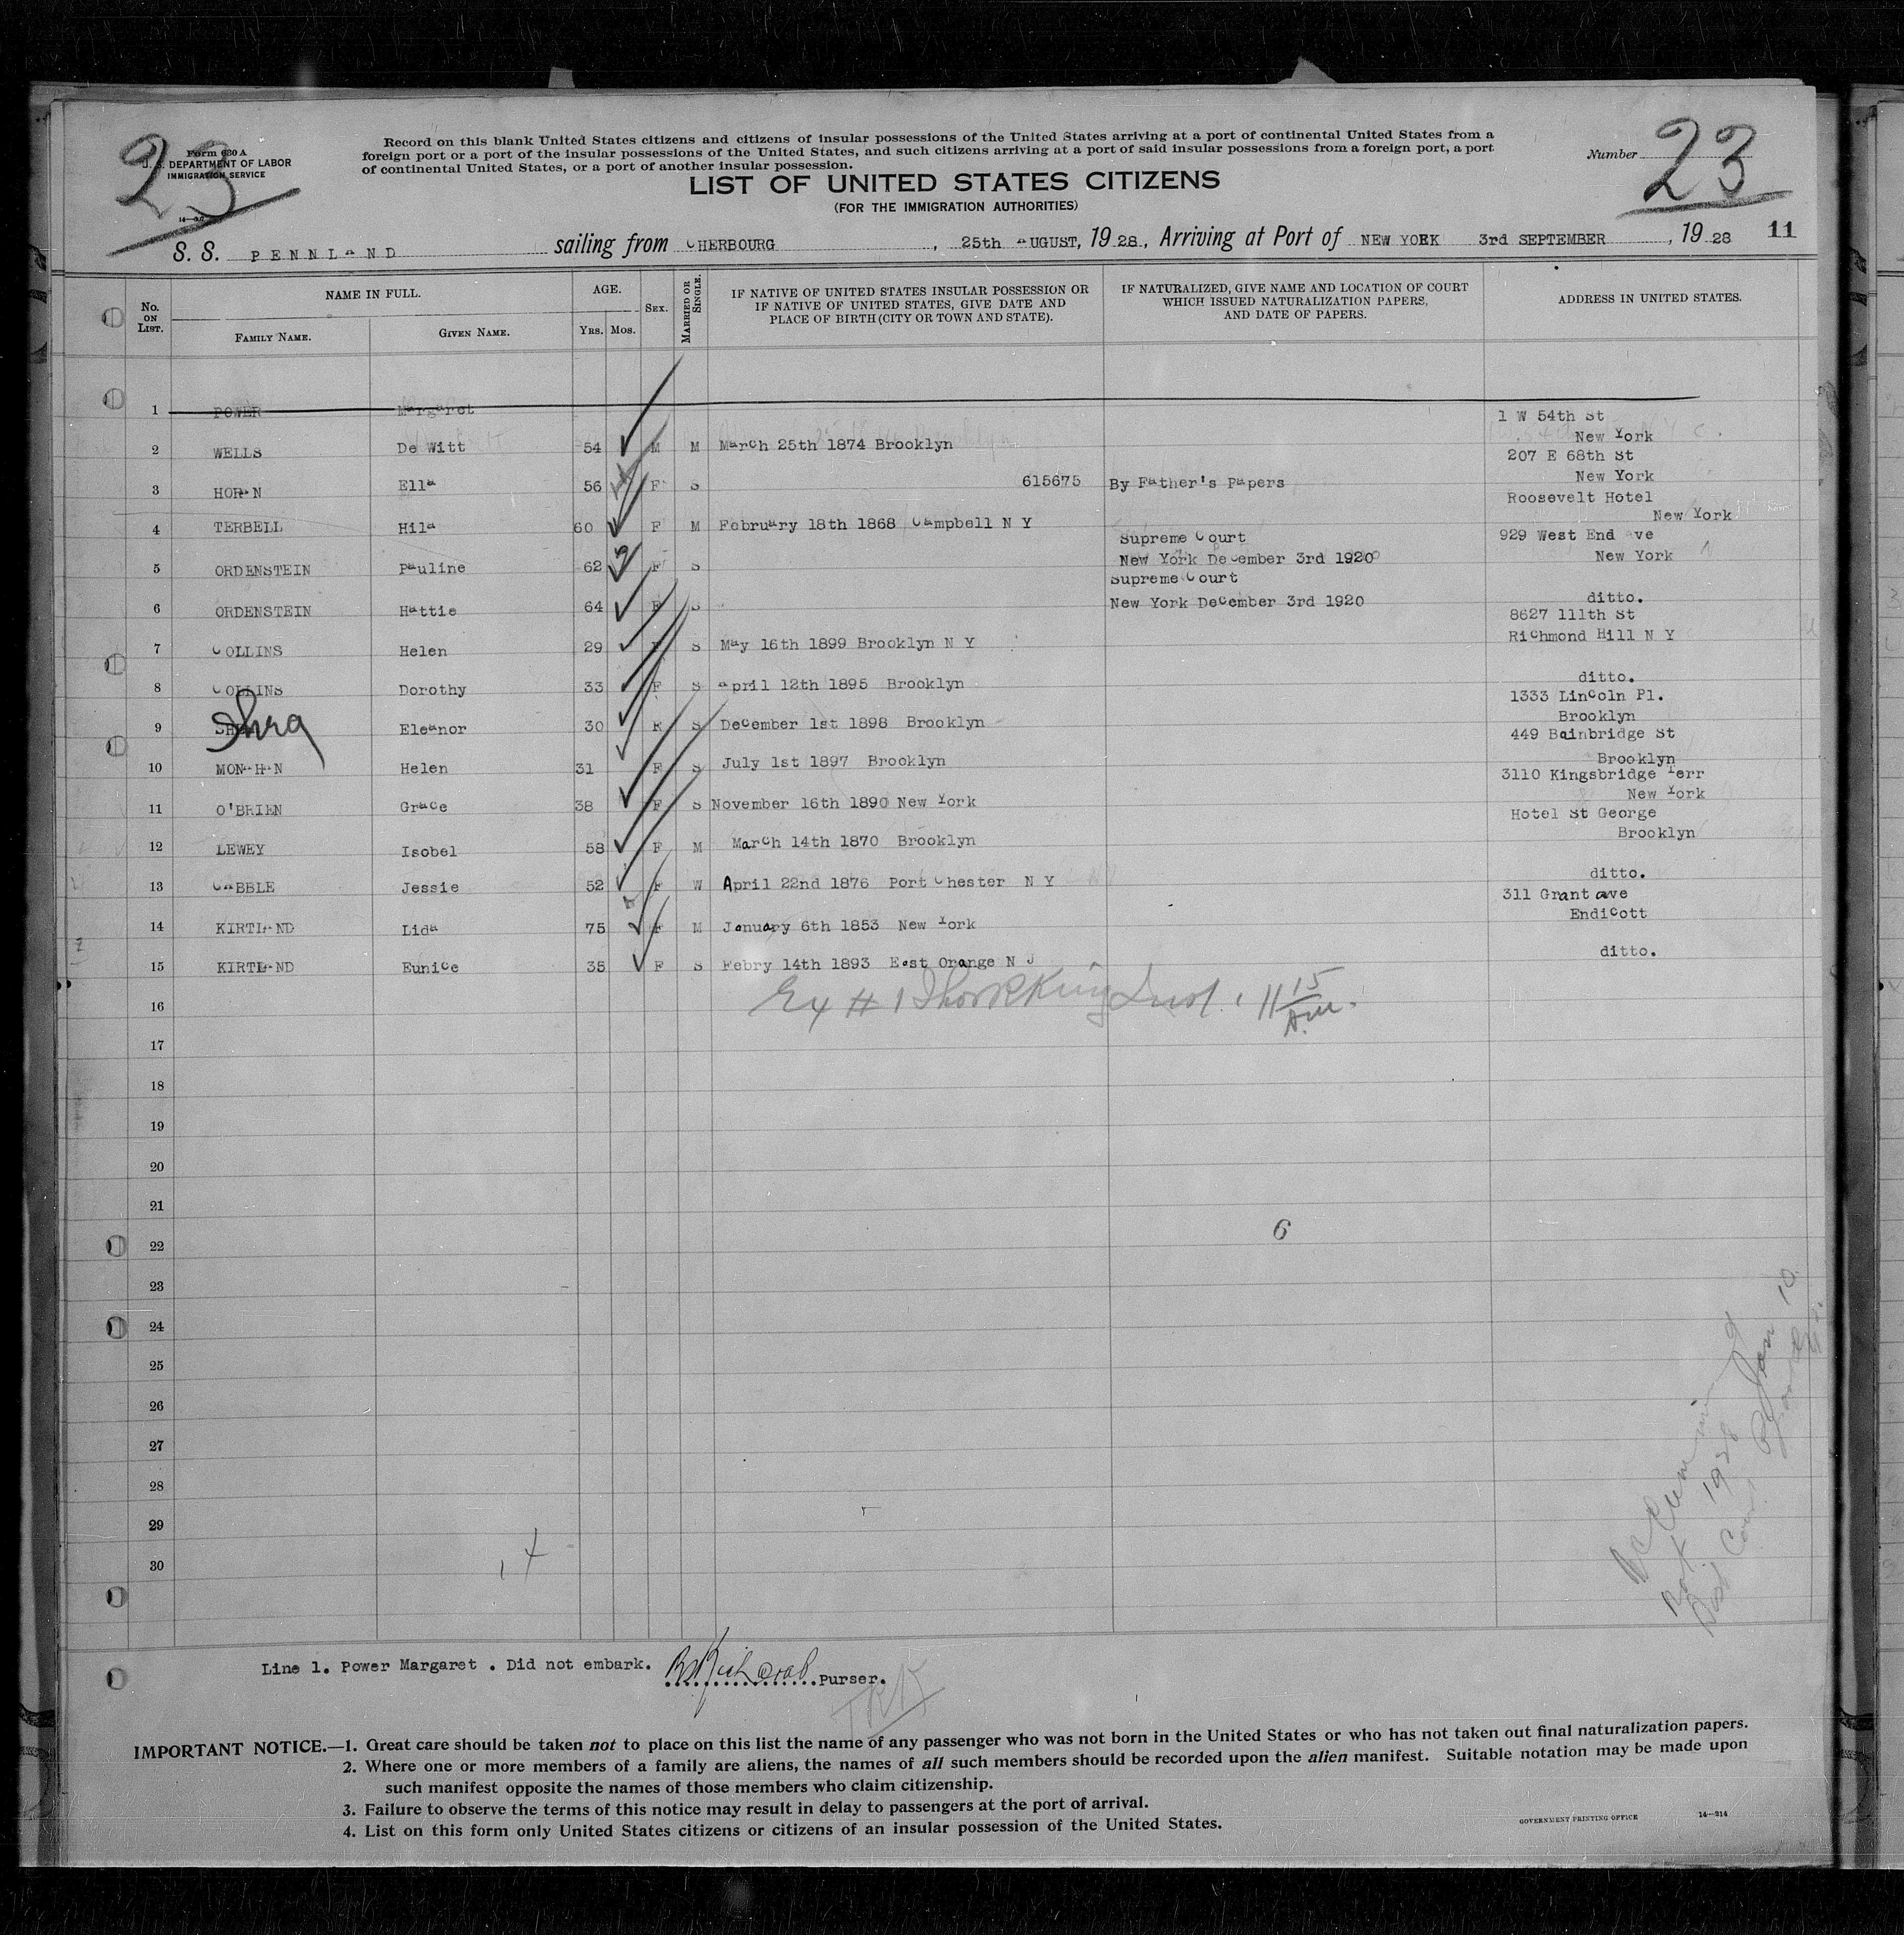 23
Form 630 A
U. S. DEPARTMENT OF LABOR
IMMIGRATION SERVICE
Record on this blank United States citizens and citizens of insular possessions of the United States arriving at a port of continental United States from a
foreign port or a port of the insular possessions of the United States, and such citizens arriving at a port of said insular possessions from a foreign port, a port
of continental United States, or a port of another insular possession.
Number 23
LIST OF UNITED STATES CITIZENS
(FOR THE IMMIGRATION AUTHORITIES)
S. S. PENNLAND sailing from CHERBOURG, 25th AUGUST, 1928, Arriving at Port of NEW YORK 3rd SEPTEMBER, 1928 11
No. ON LIST.
NAME IN FULL.
FAMILY NAME.
GIVEN NAME.
AGE.
YRS. MOS.
SEX.
MARRIED OR SINGLE.
IF NATIVE OF UNITED STATES INSULAR POSSESSION OR
IF NATIVE OF UNITED STATES, GIVE DATE AND
PLACE OF BIRTH (CITY OR TOWN AND STATE).
IF NATURALIZED, GIVE NAME AND LOCATION OF COURT
WHICH ISSUED NATURALIZATION PAPERS,
AND DATE OF PAPERS.
ADDRESS IN UNITED STATES.
1 POWER Margaret
1 W 54th St
2 WELLS De Witt 54 M M March 25th 1874 Brooklyn New York
207 E 68th St
3 HORAN Ella 56 F S 615675 By Father's Papers New York
Roosevelt Hotel
4 TERBELL Hila 60 F M February 18th 1868 Campbell N Y New York
Supreme Court 929 West End Ave
5 ORDENSTEIN Pauline 62 F S New York December 3rd 1920 New York
Supreme Court
6 ORDENSTEIN Hattie 64 F S New York December 3rd 1920 ditto.
8627 111th St
7 COLLINS Helen 29 F S May 16th 1899 Brooklyn N Y Richmond Hill N Y
8 COLLINS Dorothy 33 F S April 12th 1895 Brooklyn ditto.
1333 Lincoln Pl.
9 Eleanor 30 F S December 1st 1898 Brooklyn Brooklyn
449 Bainbridge St
10 MONAHAN Helen 31 F S July 1st 1897 Brooklyn Brooklyn
3110 Kingsbridge Terr
11 O'BRIEN Grace 38 F S November 16th 1890 New York New York
Hotel St George
12 LEWEY Isobel 58 F M March 14th 1870 Brooklyn Brooklyn
13 CABBLE Jessie 52 F W April 22nd 1876 Port Chester N Y ditto.
311 Grant ave
14 KIRTLAND Lida 75 F M January 6th 1853 New York Endicott
15 KIRTLAND Eunice 35 F S Febry 14th 1893 East Orange N J ditto.
16
17
18
19
20
21
22 6
23
24
25
26
27
28
29
30
Line 1. Power Margaret . Did not embark. Purser.
TRK
IMPORTANT NOTICE.—1. Great care should be taken not to place on this list the name of any passenger who was not born in the United States or who has not taken out final naturalization papers.
2. Where one or more members of a family are aliens, the names of all such members should be recorded upon the alien manifest. Suitable notation may be made upon
such manifest opposite the names of those members who claim citizenship.
3. Failure to observe the terms of this notice may result in delay to passengers at the port of arrival.
4. List on this form only United States citizens or citizens of an insular possession of the United States.
GOVERNMENT PRINTING OFFICE 14—214